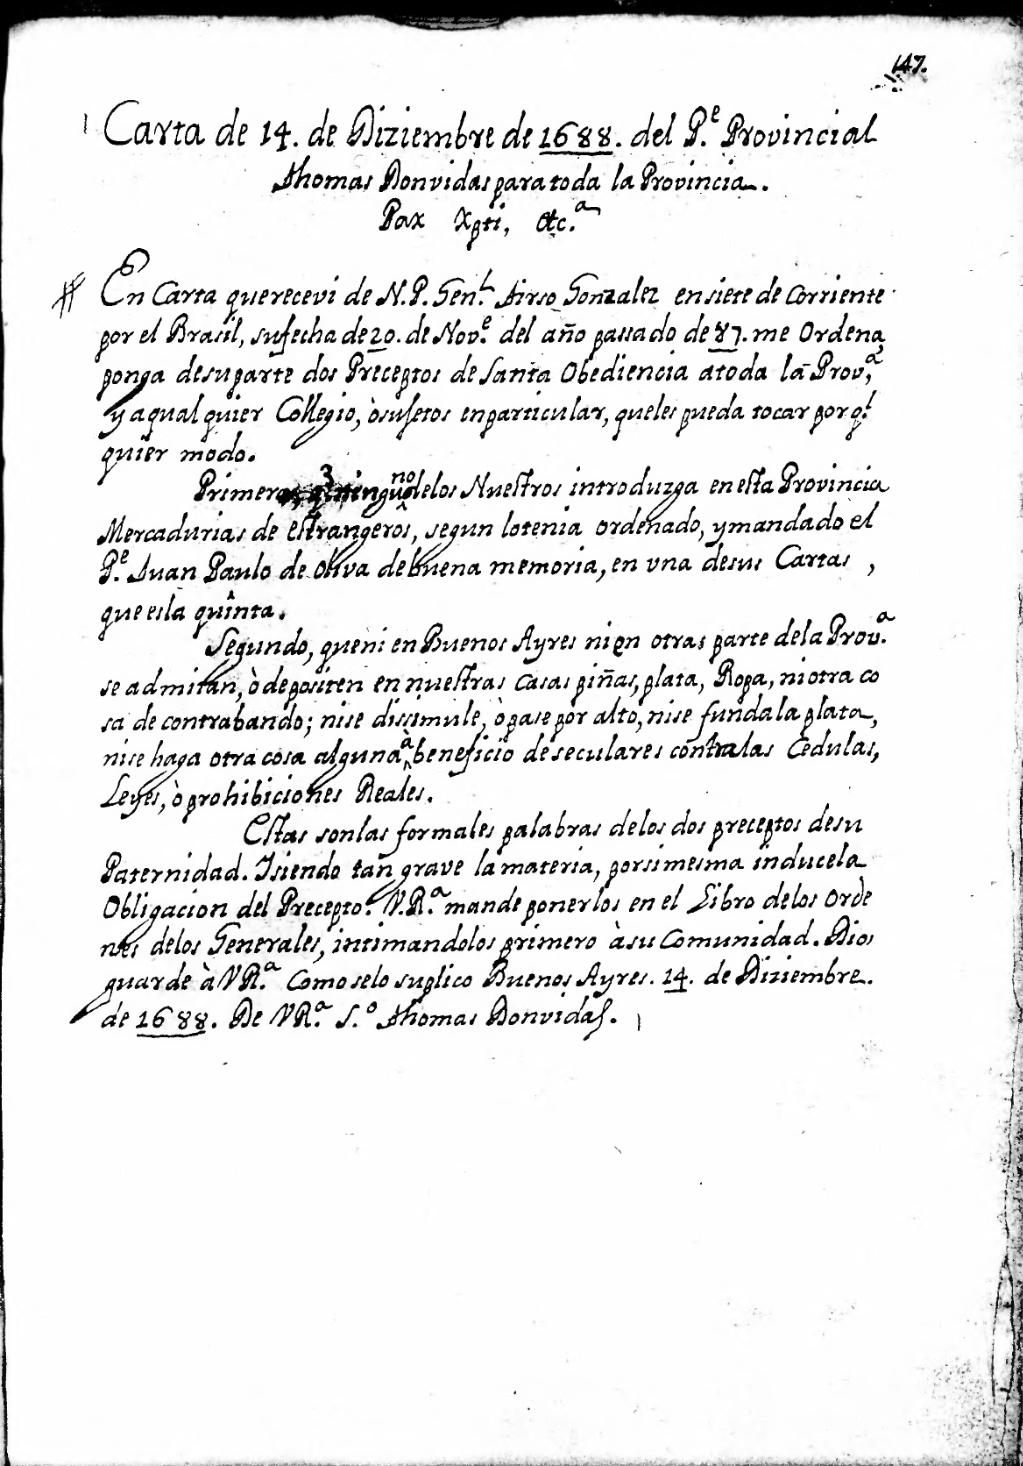 147.
Carta de 14. de Diziembre de 1688. del P.e Provincial
Thomas Donvidas para toda la Provincia.
Pax Xpti, etc.a
En Carta que recevi de N.P. Gen.l Tirso Gonzalez en siete de Corriente
por el Brasil, su fecha de 20. de Nov.e del año passado de 87. me Ordena,
ponga de su parte dos Preceptos de Santa Obediencia a toda la Prov,a
y a qual quier Collegio, ò sujetos en particular, que les pueda tocar por ql
quier modo.
Primero, q ninguno de los Nuestros introduzga en esta Provincia
Mercadurias de estrangeros, segun lo tenia ordenado, y mandado el
P.e Juan Paulo de Oliva de buena memoria, en una de sus Cartas ,
que es la quinta.
Segundo, que ni en Buenos Ayres ni en otras parte de la Prov.a
se admitan, ò depositen en nuestras casas piñas, plata, Ropa, ni otra co
sa de contrabando; ni se dissimule, ò pase por alto, ni se funda la plata,
ni se haga otra cosa alguna à beneficio de seculares contra las Cedulas,
Leyes, ò prohibiciones Reales.
Estas son las formales palabras de los dos preceptos de su
Paternidad. I siendo tan grave la materia, por si mesma induce la
Obligacion del Precepto. V.R.a mande ponerlos en el Libro de los Orde
nes de los Generales, intimandolos primero à su Comunidad. Dios
guarde à VR.a Como se lo suplico Buenos Ayres. 14. de Diziembre.
de 1688. De VR.a S.o Thomas Donvidas.